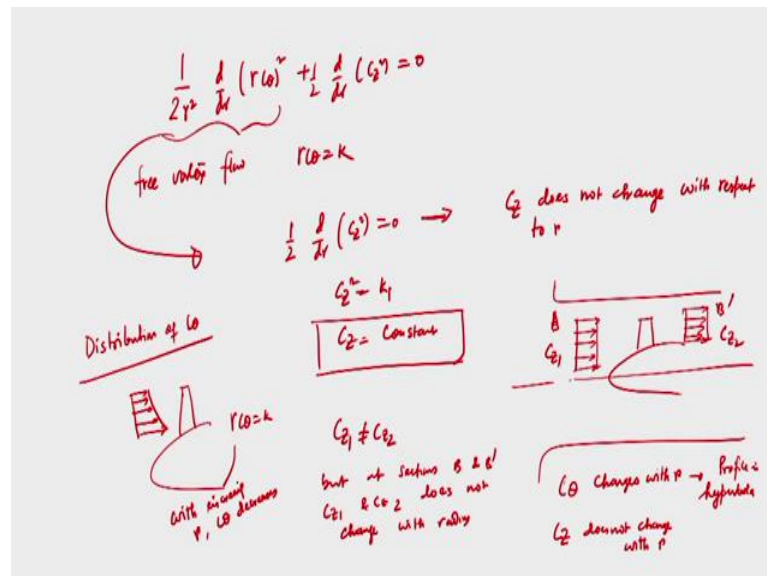 1/2r² d/dr (rCθ)² + 1/2 d/dr (Cz²) = 0
free vortex flow rCθ = K
1/2 d/dr (Cz²) = 0 → Cz does not change with respect
to r
Cz² = K₁
Cz = Constant
Distribution of Cθ
rCθ = K
with increasing
r, Cθ decreases
B
Cz₁
B'
Cz₂
Cz₁ ≠ Cz₂
but at sections B & B'
Cz₁ & Cz₂ does not
change with radius
Cθ changes with r → Profile is
hyperbola
Cz does not change
with r